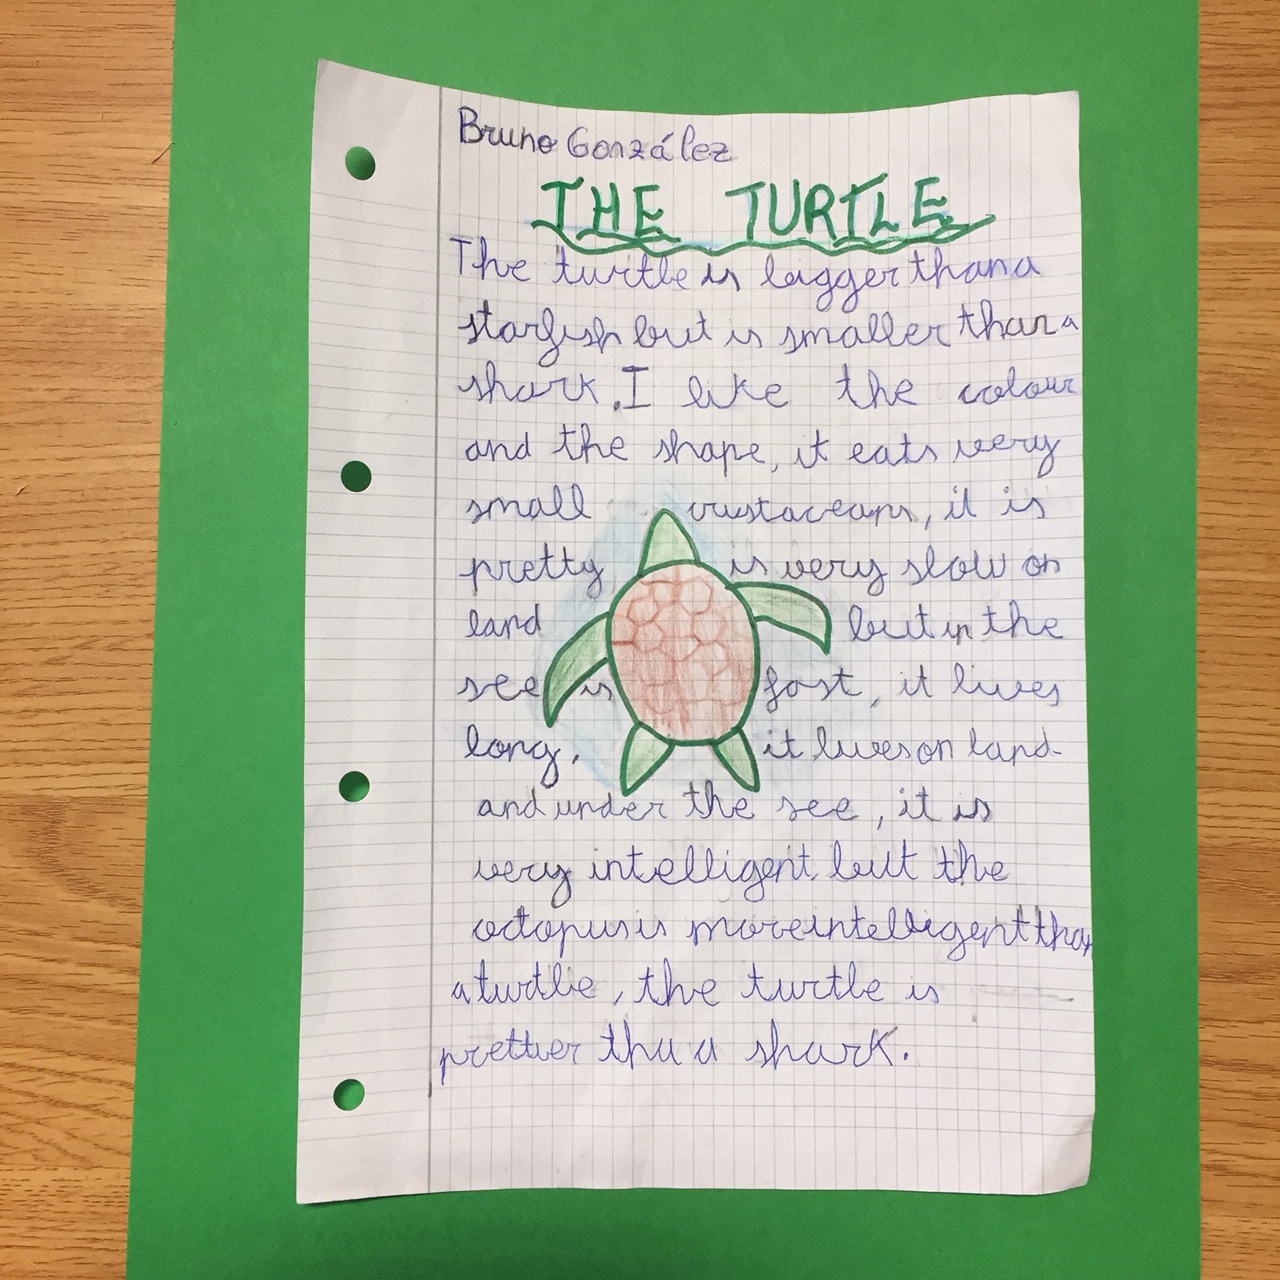 Bruno González
THE TURTLE
The turtle is bigger than a
starfish but is smaller than a
shark. I like the colour
and the shape, it eats very
small crustaceans, it is
pretty is very slow on
land but in the
see is fast, it lives
long, it lives on land
and under the see, it is
very intelligent, but the
octopus is more intelligent than
a turtle, the turtle is
prettier tha a shark.